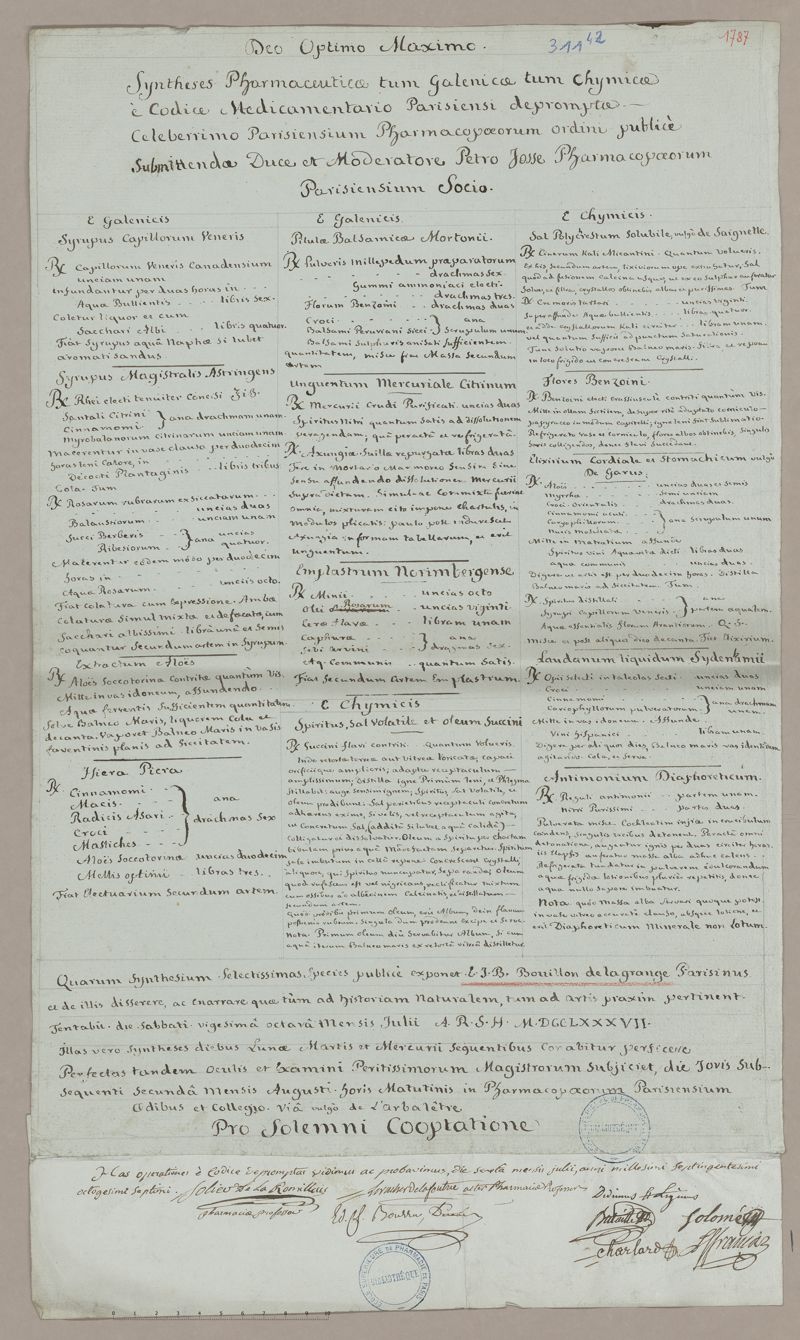 Deo Optimo Maximo.
311 42
1787
Syntheses Pharmaceuticæ tum Galenicæ tum Chymicæ
è Codice Medicamentario Parisiensi depromptæ
Celeberrimo Parisiensium Pharmacopæorum ordini publicè
Submittendæ Duce et Moderatore Petro Josse Pharmacopæorum
Parisiensium Socio.
E Galenicis
Syrupus Capillorum Veneris
℞ Capillorum Veneris Canadensium
unciam unam
infundantur per duas horas in
Aqua Bullientis libris sex.
Coletur liquor et cum
Sacchari Albi libris quatuor.
Fiat Syrupus aquâ Naphæ si lubet
aromatisandus
Syrupus Magistralis Astringens
℞ Rhei electi tenuiter Concisi
Santali Citrini
Cinnamomi } ana drachmam unam.
Myrobalanorum citrinarum unciam unam.
Macerentur in vase clauso per duodecim
horas leni Calore, in
Decocti Plantaginis libris tribus
Cola. Tum
℞ Rosarum rubrarum exsiccatarum
uncias duas
Balaustiorum unciam unam
Succi Berberis
Ribesiorum } ana uncias quatuor.
Macerentur eodem modo per duodecim
horas in
Aquæ Rosarum unciis octo.
Fiat Colatura cum Expressione. Ambæ
Colaturæ Simul mixtæ et defæcatæ, cum
Sacchari albissimi librâ unâ et Semis
coquantur Secundum artem in Syrupum.
Extractum Aloës
℞ Aloës Soccotorinæ Contritæ quantùm Vis.
Mitte in vas idoneum, affundendo
Aquæ ferventis Sufficientem quantitatem.
Solve Balneo Maris, liquorem Cola et
decanta. Vaporet Balneo Maris in Vasis
faventinis planis ad Siccitatem.
Hiera Picra
℞ Cinnamomi
Macis
Radicis Asari
Croci
Mastiches } ana drachmas Sex
Aloës Soccotorinæ uncias duodecim
Mellis optimi libras tres
Fiat Electuarium Secundum artem.
E Galenicis.
Pilulæ Balsamicæ Mortonii.
℞ Pulveris Millepedum præparatorum
drachmas sex.
Gummi ammoniaci electi
drachmas tres.
Florum Benzoini drachmas duas
Croci
Balsami Peruviani Sicci } ana Scrupulum unum
Balsami Sulphuris anisati Sufficientem
quantitatem, misce fiat Massa Secundum
artem.
Unguentum Mercuriale Citrinum
℞ Mercurii Crudi Purificati uncias duas
Spiritus Nitri quantum Satis ad dissolutionem
peragendam; quâ peractâ et refrigeratâ.
℞ Axungiæ Suillæ repurgatæ libras duas
Tere in Mortario Marmoreo Sensim Sine
Sensu affundendo dissolutionem Mercurii
Supra dictam. Simul ac Commixta fuerint
Omnia, mixturam cito impone Chartulis, in
modulos plicatis: paulo post indurescet
Axungia in formam tabellarum, et erit
Unguentum.
Emplastrum Norimbergense
℞ Minii uncias octo
Olei Rosarum uncias viginti
Ceræ flavæ libram unam
Caphuræ
Sebi Cervini } ana drachmas Sex
Aq. Communis quantum Satis.
Fiat Secundum Artem Emplastrum.
E Chymicis
Spiritus, Sal Volatile et Oleum Succini
℞ Succini flavi contriti Quantum Volueris.
Inde retorta terrea aut Vitrea loricata, capaci
orificiique amplioris; adapta receptaculum
amplissimum; distilla igne Primùm leni, et Phlegma
Stillabit; auge Sensim ignem; Spiritus Sal Volatile, et
oleum prodibunt. Sal parietibus receptaculi concretum
adhærens eximi, Si velis, vel receptaculum agita,
ut Concretum Sal (additâ si lubet aquâ Calidâ)
Colligatur et dissolvatur. Oleum a Spiritu per chartam
bibulam prius aquâ Madefactam Separetur. Spiritum
Sale imbutum in cellâ repone: Concrescent Crystalli
aliquot, qui Spiritus nuncupatur, Sepia rando; Oleum
quod rufescens est vel nigricans, rectificatur mixtum
cum ossibus ad albedinem Calcinatis, et distillatum
secundum artem.
Quoad prodibit primum oleum, erit Album, dein flavum
postremo rubrum. Singula dum prodeunt excipe et Serva.
Nota. Primum oleum diù Servabitur Album, Si cum
aquâ iterum Balneo maris ex retortâ vitreâ distilletur.
E Chymicis.
Sal Polychrestum Solubile, vulgò de Saignette.
℞ Cinerum Kali Alicantini Quantum Volueris.
Ex his, Secundùm artem, lixiviorum ope extrahatur, Sal
Solve, et filtra, Crystallos obtinebis albas et purissimas. Tum
℞ Cremoris tartari uncias viginti.
Superaffunde Aquæ bullientis libras quatuor.
et adde crystallorum Kali circiter libram unam.
vel quantum Sufficit ad punctum Saturationis.
Tunc Solutio vaporet Balneo maris. Filtra et repone
in loco frigido ut concrescant Crystalli.
Flores Benzoini.
℞ Benzoini electi crassiusculè contriti quantùm Vis.
Mitte in ollam fictilem, desuper ritè adaptato corniculo
papyraceo in modum capitelli; igne leni fiat Sublimatio.
Refrigerato vase et corniculo, flores albos obtinebis, Singulis
horis colligendos, donec flavi Succedant.
Elixirium Cordiale et Stomachicum vulgò
De Garus.
℞ Aloës uncias duas et Semis
Myrrhæ Semi unciam
Croci Orientalis drachmas duas.
Cinnamomi acuti
Caryophillorum
Nucis moschatæ } ana Scrupulum unum
Mitte in Matratium affunde
Spiritus vini Aquavitæ dicti libras duas
aquæ communis uncias duas.
Digere ut artis est per duodecim horas. Distilla
Balneo maris ad Siccitatem. Tum.
℞ Spiritus distillati
Syrupi Capillorum Veneris } ana partem æqualem.
Aquæ essentialis florum Arantiorum Q. S.
Misce et post aliquot dies decanta. Fiat Elixirium.
Laudanum liquidum Sydenhamii
℞ Opii Selecti in taleolas Secti uncias duas
Croci unciam unam
Cinnamomi
Caryophyllorum pulveratorum } ana drachmam unam.
Mitte in vas idoneum. Affunde
Vini Hispanici libram unam.
Digere per aliquot dies, Balneo maris vas identidem
agitando. Cola, et Serva.
Antimonium Diaphoreticum.
℞ Reguli antimonii partem unam.
Nitri Purissimi partes duas.
Pulverata misce. Cochleatim injice in crucibulum
candens, Singulis vicibus detonent. Peractâ omni
detonatione, augeatur ignis per duas circiter horas,
iis elapsis auferatur massa alba adhuc calens
Refrigerata tundatur in pulverem edulcorandum
aquâ frigidâ lotionibus pluriès repetitis, donec
aqua nullo sapore imbuatur.
Nota quòd Massa alba Servari quoque potest,
in vase vitreo accuratè clauso, absque lotione, et
erit Diaphoreticum Minerale non lotum.
Quarum Synthesium Selectissimas Species publicè exponet E. J. B. Bouillon delagrange Parisinus
et de illis disserere, ac enarrare quæ tùm ad Historiam Naturalem, tum ad artis praxim pertinent.
Tentabit die Sabbati vigesimâ octavâ Mensis Julii A. R. S. H. M.DCCLXXXVII.
Illas vero Syntheses diebus Lunæ Martis et Mercurii Sequentibus Conabitur perficere
Perfectas tandem Oculis et Examini Peritissimorum Magistrorum Subjiciet, die Jovis Sub-
sequenti Secundâ Mensis Augusti horis Matutinis in Pharmacopæorum Parisiensium
Ædibus et Collegio. Viâ vulgò de L'arbalêtre
Pro Solemni Cooptatione
Has operationes è Codice depromptas vidimus ac probavimus, die sextâ mensis julii, anni millesimi septingentesimi
octogesimi septimi.
pharmaciæ professor
Charlard
Solomé
ÉCOLE SUPÉRIEURE DE PHARMACIE DE PARIS
BIBLIOTHÈQUE